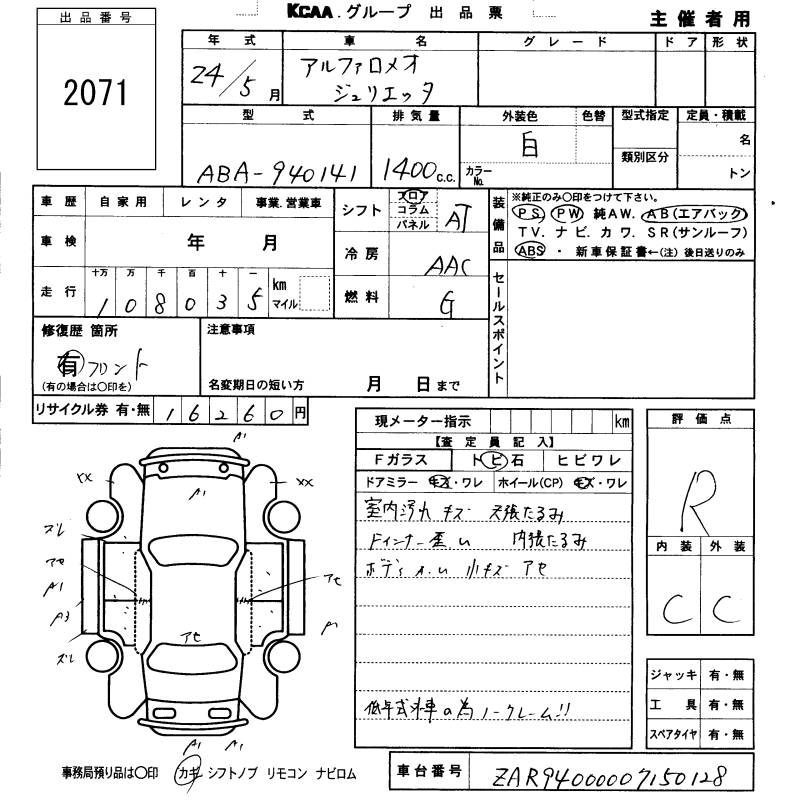 KCAA.グループ 出品票
主催者用
出品番号
2071
年式
24/5月
車名
アルファロメオ
ジュリエッタ
グレード
ドア 形状
型式
ABA-940141
排気量
1400c.c.
外装色 色替
白
カラーNo.
型式指定
類別区分
定員・積載
名
トン
車歴 自家用 レンタ 事業.営業車
車検 年 月
走行 十万 万 千 百 十 一
108035 km マイル
シフト フロア コラム パネル AT
冷房 AAC
燃料 G
装備品
※純正のみ〇印をつけて下さい。
PS PW 純AW. AB(エアバック)
TV. ナビ. カワ. SR(サンルーフ)
ABS ・ 新車保証書←(注) 後日送りのみ
セールスポイント
修復歴 箇所
有 フロント
(有の場合は〇印を)
注意事項
名変期日の短い方 月 日まで
リサイクル券 有・無 16260円
現メーター指示 km
【査定員記入】
Fガラス トビ石 ヒビワレ
ドアミラー キズ・ワレ ホイール(CP) キズ・ワレ
室内汚れ キズ 天張たるみ
Fインナー歪い 内張たるみ
ボディ 小キズ アセ
低年式外車の為ノークレーム!!
評価点
R
内装 外装
C C
ジャッキ 有・無
工具 有・無
スペアタイヤ 有・無
A1
XX
A1
XX
ズレ
アセ
A1
A3
ズレ
アセ
アセ
A1
A1
A1
事務局預り品は〇印 カギ シフトノブ リモコン ナビロム
車台番号 ZAR94000007150128